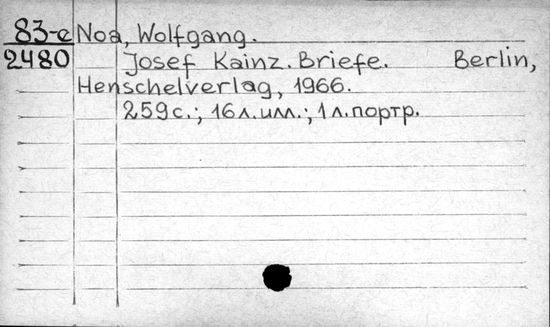 83-е Noa, Wolfgang.
2480 Josef Kainz. Briefe. Berlin,
Henschelverlag, 1966.
259с.; 16л.илл.; 1л.портр.